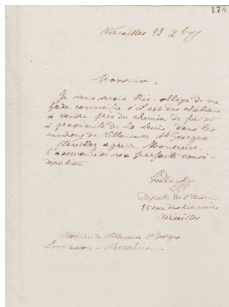 174
Versailles 22 Xbre 75
Monsieur
Je vous serais très obligé de me
faire connaître s'il est un château
à vendre près du chemin de fer et
à proximité de la Seine, dans les
environs de Villeneuve St Georges
Veuillez agréer Monsieur,
l'assurance de ma parfaite consi-
dération
Député de
Versailles
Notaire de Villeneuve St Georges